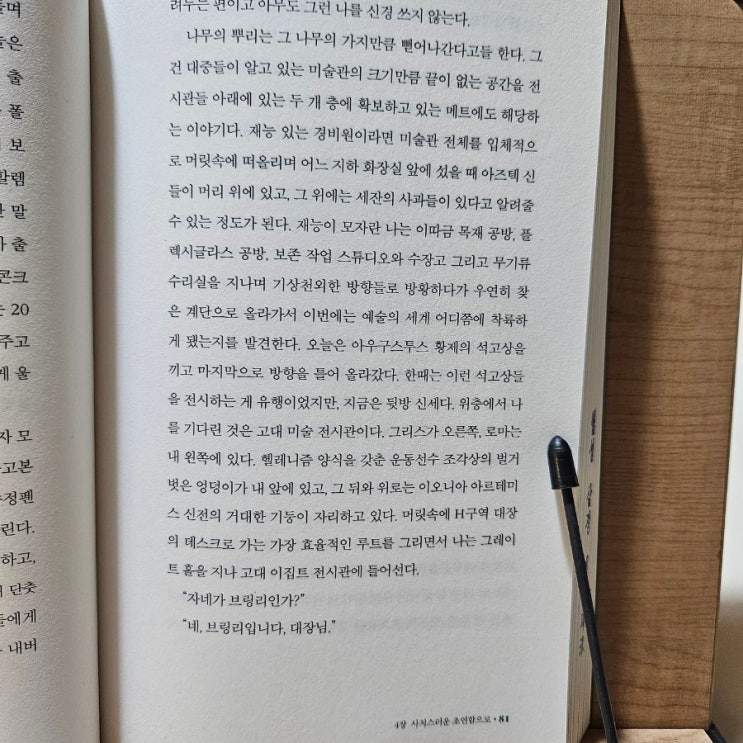 며
들은
출
폴
보
할렘
말
출
콘크
는 20
주고
게 울
자 모
고본
수정펜
린다.
하고,
단춧
들에게
내버
려두는 편이고 아무도 그런 나를 신경 쓰지 않는다.
나무의 뿌리는 그 나무의 가지만큼 뻗어나간다고들 한다. 그
건 대중들이 알고 있는 미술관의 크기만큼 끝이 없는 공간을 전
시관들 아래에 있는 두 개 층에 확보하고 있는 메트에도 해당하
는 이야기다. 재능 있는 경비원이라면 미술관 전체를 입체적으
로 머릿속에 떠올리며 어느 지하 화장실 앞에 섰을 때 아즈텍 신
들이 머리 위에 있고, 그 위에는 세잔의 사과들이 있다고 알려줄
수 있는 정도가 된다. 재능이 모자란 나는 이따금 목재 공방, 플
렉시글라스 공방, 보존 작업 스튜디오와 수장고 그리고 무기류
수리실을 지나며 기상천외한 방향들로 방황하다가 우연히 찾
은 계단으로 올라가서 이번에는 예술의 세계 어디쯤에 착륙하
게 됐는지를 발견한다. 오늘은 아우구스투스 황제의 석고상을
끼고 마지막으로 방향을 틀어 올라갔다. 한때는 이런 석고상들
을 전시하는 게 유행이었지만, 지금은 뒷방 신세다. 위층에서 나
를 기다린 것은 고대 미술 전시관이다. 그리스가 오른쪽, 로마는
내 왼쪽에 있다. 헬레니즘 양식을 갖춘 운동선수 조각상의 벌거
벗은 엉덩이가 내 앞에 있고, 그 뒤와 위로는 이오니아 아르테미
스 신전의 거대한 기둥이 자리하고 있다. 머릿속에 H구역 대장
의 데스크로 가는 가장 효율적인 루트를 그리면서 나는 그레이
트 홀을 지나 고대 이집트 전시관에 들어선다.
“자네가 브링리인가?”
“네, 브링리입니다, 대장님.”
4장 사치스러운 초연함으로 • 81